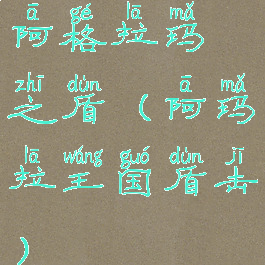 ā gé lā mǎ
阿格拉玛
zhī dùn ā mǎ
之盾（阿玛
lā wáng guó dùn jī
拉王国盾击
）